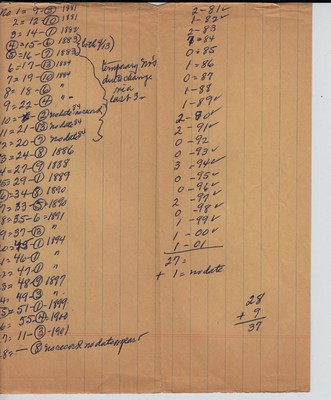 No 1 = 9-② 1881
2 = 12-⑩ 1881
3 = 14-① 1882
④ = 15-⑥ 1883
⑤ = 16-⑦ 1883
(both 4/13)
6 - 17-⑬ 1884
7 = 19-⑩ 1884
8 = 18-⑥ "
9 = 22-④ "
temporary
due to change
in a
Last 3-
10 = -② no date 84 no record
11 = 21-⑬ no date 84
12 = 20-⑦ no date 84
3 = 24-⑧ 1886
4 = 27-⑨ 1888
5 = 29-① 1889
⑥ = 34-⑧ 1890
7 = 33-⑤ =1890
8 = 35-6 =1891
9 = 37-⑬ "
0 = 45-① 1894
1 = 46-① "
2 = 47-① "
3 = 48-⑨ 1897
4 = 49-③ "
5 = 51-①-1899
6 = 55-④-1900
7 = 11-③-1901
8 = — ⑧ no record no date or year
2-81✓
1-82✓
2-83
84
0=85
1-86
0=87
1-88
1-89✓
2-90✓
2-91✓
0-92
0-93✓
3-94✓
0-95✓
0-96✓
2-97
0-98✓
1-99✓
1-00✓
1-01
27=
+ 1 = no date
28
+ 9
37